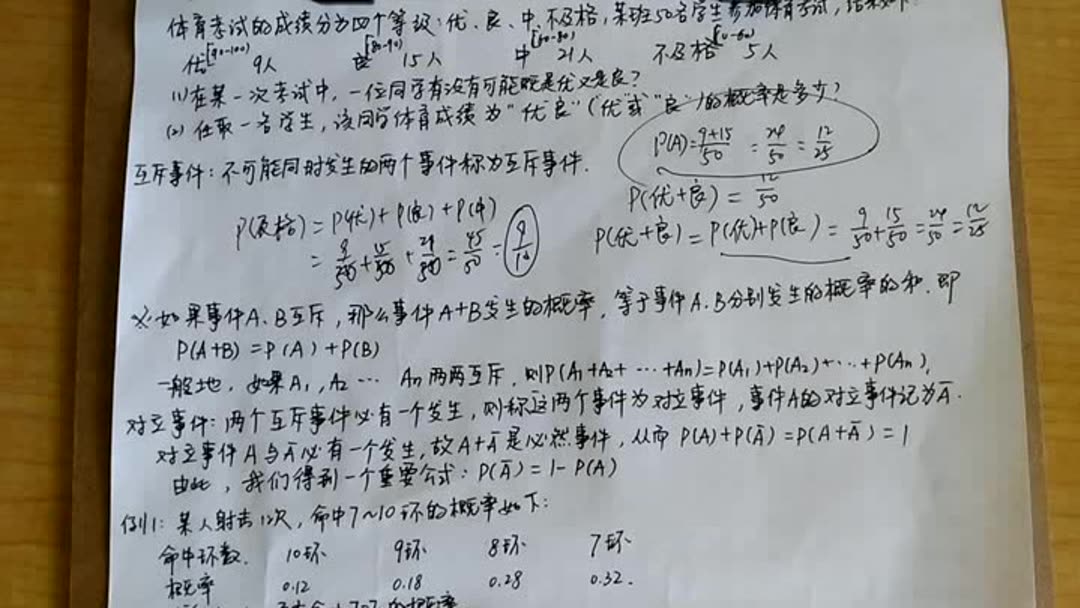 体育考试的成绩分为四个等级:优、良、中、不及格,某班50名学生参加体育考试,结果如下:
优[90-100) 9人 良[80-90) 15人 中[60-80) 21人 不及格[0-60) 5人
(1)在某一次考试中,一位同学有没有可能既是优又是良?
(2)任取一名学生,该同学体育成绩为"优良"("优"或"良")的概率是多少?
P(A)=9+15/50 = 24/50 = 12/25
互斥事件:不可能同时发生的两个事件称为互斥事件.
P(优+良) = 12/50
P(及格)=P(优)+P(良)+P(中)
P(优+良)=P(优)+P(良)= 9/50+15/50=24/50=12/25
= 9/50+15/50+21/50=45/50=9/10
※如果事件A、B互斥,那么事件A+B发生的概率,等于事件A、B分别发生的概率的和.即
P(A+B)=P(A)+P(B)
一般地,如果A₁,A₂…An两两互斥,则P(A₁+A₂+…+An)=P(A₁)+P(A₂)+…+P(An),
对立事件:两个互斥事件必有一个发生,则称这两个事件为对立事件,事件A的对立事件记为Ā.
对立事件A与Ā必有一个发生,故A+Ā是必然事件,从而P(A)+P(Ā)=P(A+Ā)=1
由此,我们得到一个重要公式:P(Ā)=1-P(A)
例1:某人射击1次,命中7~10环的概率如下:
命中环数. 10环 9环 8环 7环
概率 0.12 0.18 0.28 0.32.